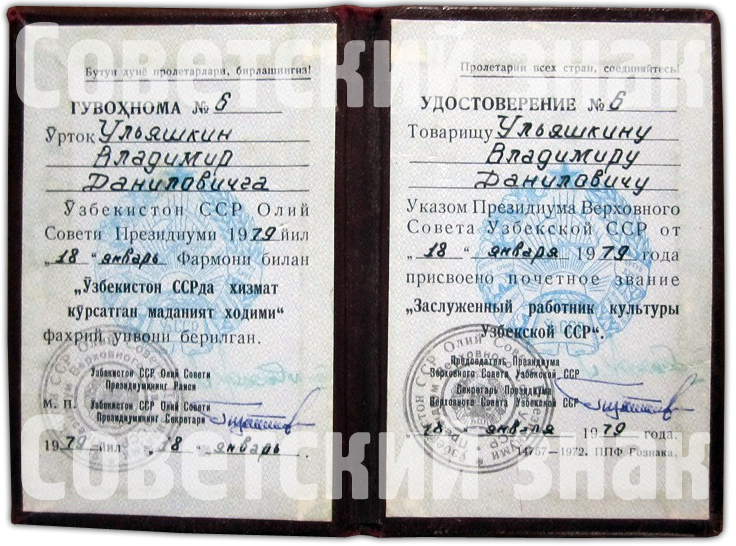 Советский знак
Бутун дунё пролетарлари, бирлашингиз!
ГУВОҲНОМА № 6
Ўртоқ Ульяшкин
Владимир
Даниловичга
Ўзбекистон ССР Олий
Совети Президиуми 1979 йил
„18" январь Фармони билан
„Ўзбекистон ССРда хизмат
кўрсатган маданият ходими"
фахрий унвони берилган.
Ўзбекистон ССР Олий Совети
Президиумининг Раиси
М. П. Ўзбекистон ССР Олий Совети
Президиумининг Секретари
1979 йил „18" январь.
Пролетарии всех стран, соединяйтесь!
УДОСТОВЕРЕНИЕ № 6
Товарищу Ульяшкину
Владимиру
Даниловичу
Указом Президиума Верховного
Совета Узбекской ССР от
„18" января 1979 года
присвоено почетное звание
„Заслуженный работник культуры
Узбекской ССР".
Председатель Президиума
Верховного Совета Узбекской ССР
Секретарь Президиума
Верховного Совета Узбекской ССР
18 января 1979 года.
14757—1972. ППФ Гознака.
Советский знак